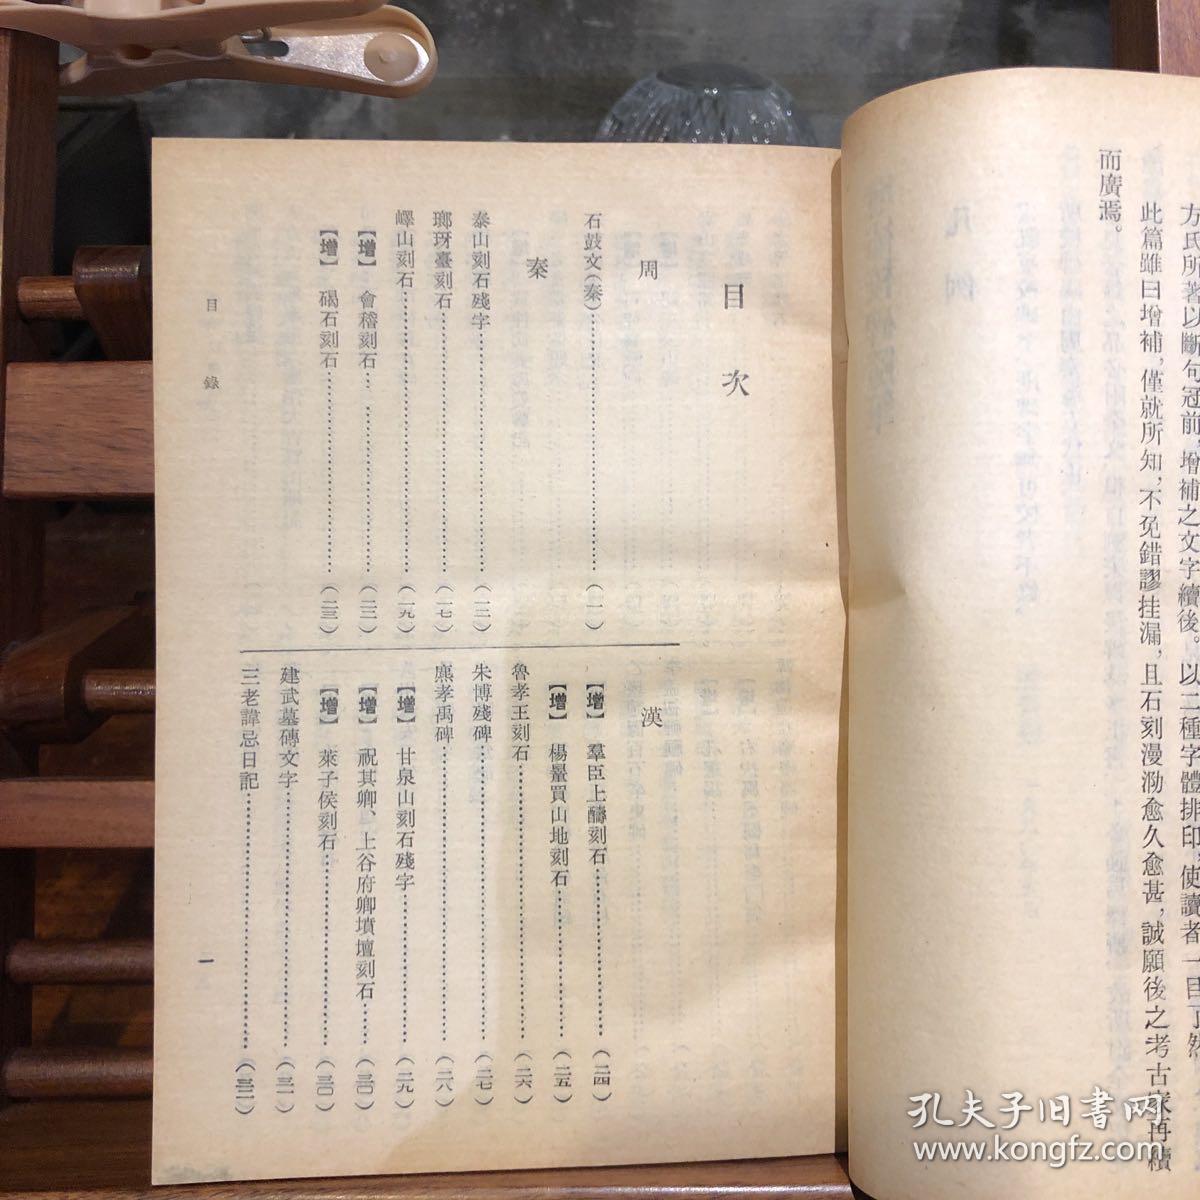 方氏所著以斷句冠前，增補之文字續後。以二種字體排印，使讀者一目了然
此篇雖曰增補，僅就所知，不免錯謬挂漏，且石刻漫泐愈久愈甚，誠願後之考古家再續
而廣焉。
目次
周
石鼓文（秦）……（一）
秦
泰山刻石殘字……（一三）
瑯玡臺刻石……（一七）
嶧山刻石……（一九）
【增】 會稽刻石……（二二）
【增】 碣石刻石……（二三）
漢
【增】 羣臣上醻刻石……（二四）
【增】 楊量買山地刻石……（二五）
魯孝王刻石……（二六）
朱博殘碑……（二七）
麃孝禹碑……（二八）
【增】 甘泉山刻石殘字……（二九）
【增】 祝其卿、上谷府卿墳壇刻石……（三〇）
【增】 萊子侯刻石……（三〇）
建武墓磚文字……（三一）
三老諱忌日記……（三二）
目錄
一
孔夫子旧书网
www.kongfz.com